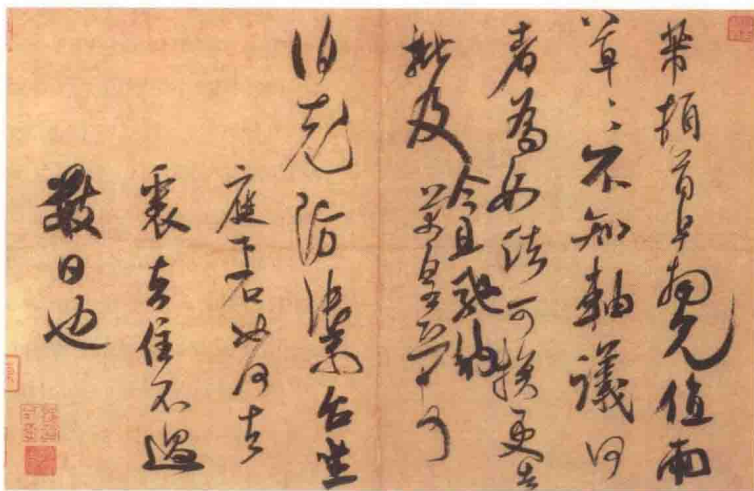 芾頓首早拜見值雨
草〻不知軸議何
者為如法可換更告
批及今且馳納
芾皇恐頓首
伯充防禦台坐
庭下石如何去
裏去住不過
數日也